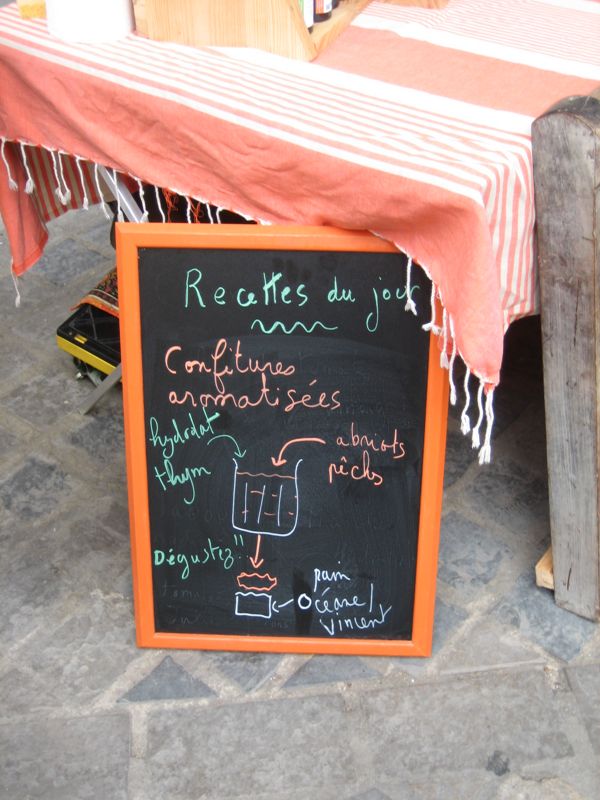 Recettes du jour
Confitures
aromatisées
hydrolat
thym
abriots
pêchs
Dégustez!!
pain
Océane/
Vincent